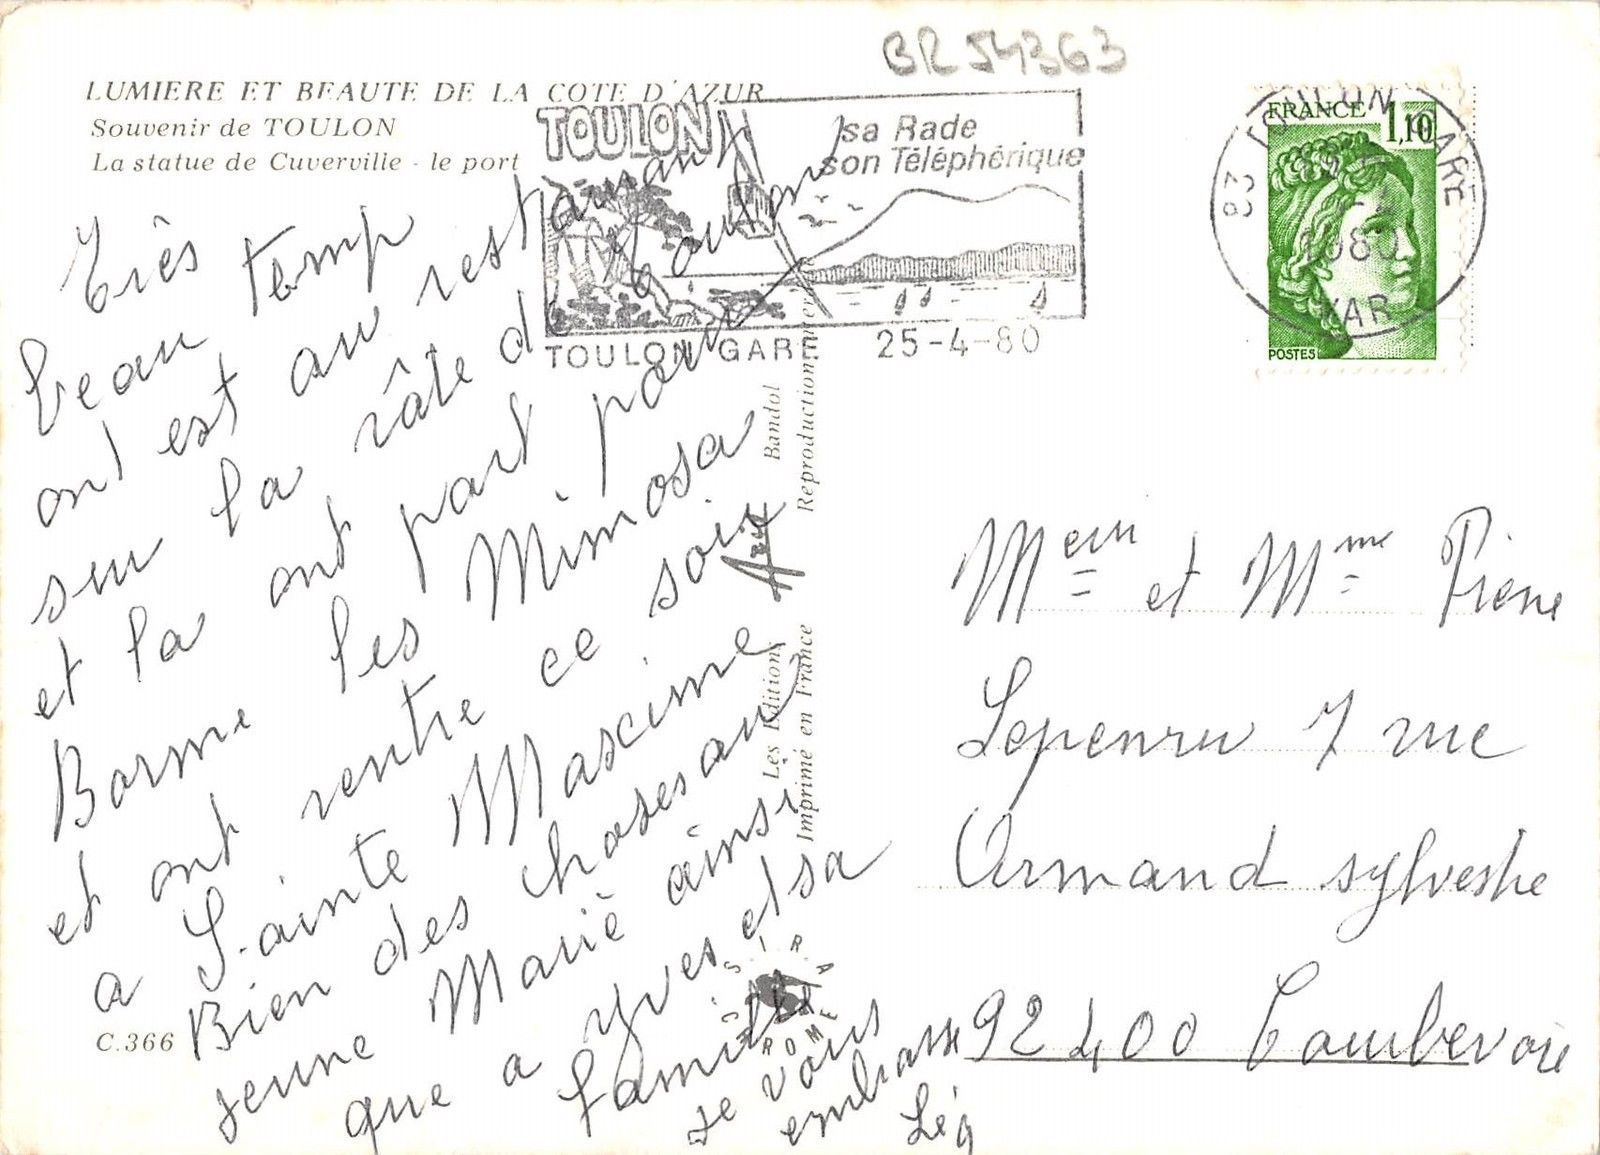 BR 54363
LUMIERE ET BEAUTE DE LA COTE D'AZUR
Souvenir de TOULON
La statue de Cuverville - le port
TOULON
sa Rade
son Téléphérique
TOULON GARE
25-4-80
83 TOULON GARE
1980
VAR
FRANCE 1,10
POSTES
Très
beau temp
ont est au restaurant
sur la râte de toulon
et la ont part pour
Borme les Mimosa
et ont rentre ce soir
a Sainte Mascime
Bien des choses au
jeune Marié ainsi
que a Yves et sa
famille
je vous
embrasse
C.366
Les Editions
Bandol
Imprimé en France
Reproduction
CIS IRA
CHROME
Meur et Mme Pierre
7 rue
Armand sylvestre
92400 Courbevoie